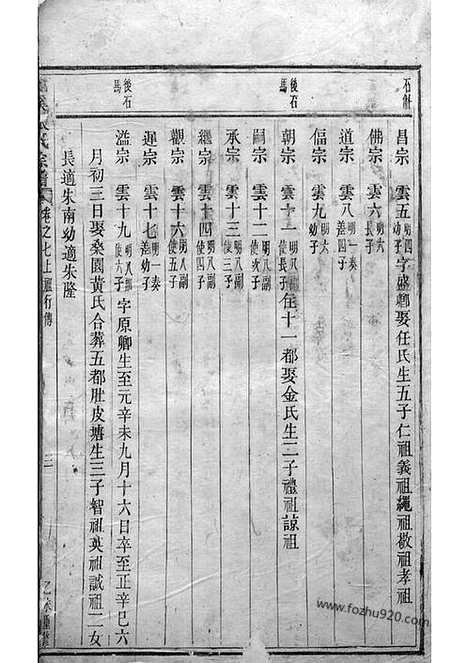 石倉
昌宗 雲五 明四幼子 字盛郡娶任氏生五子仁祖義祖繩祖敬祖孝祖
佛宗 雲六 明六長子
道宗 雲八 明一奏善四子
偪宗 雲九 明六幼子
後石馬
朝宗 雲十一 明八副使長子 住十一都娶金氏生二子禮祖諒祖
嗣宗 雲十二 明八副使次子
承宗 雲十三 明八副使三子
繼宗 雲十四 明八副使四子
觀宗 雲十六 明八副使五子
迎宗 雲十七 明一奏差幼子
後石馬
溢宗 雲十九 明八副使六子 字原卿生至元辛未九月十六日卒至正辛巳六
月初三日娶桑園黃氏合葬五都肚皮塘生三子智祖英祖誠祖二女
長適朱南幼適朱隆
氏宗譜 卷之七上 行傳 三